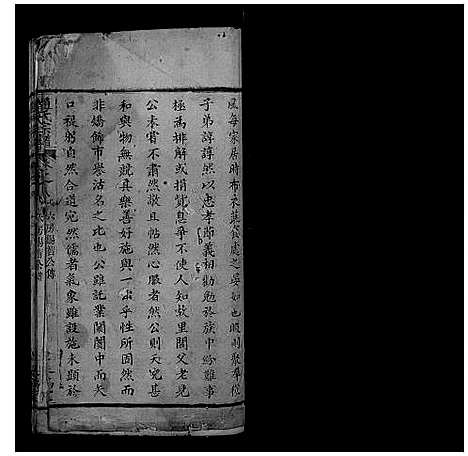 風每家居時布衣蔬食處之晏如也暇則聚羣從
子弟諄諄然以忠孝節義相勸勉於族中紛難事
極為排解或捐貲息爭不使人知故里閭父老見
公未嘗不肅然敬且帖然心服者然公則天寬甚
和與物無競真樂善好施與一本乎性所固然而
非矯飾市譽沽名之比也公雖託業闤闠中而矢
口視躬自然合道宛然儒者氣象雖設施未顯於